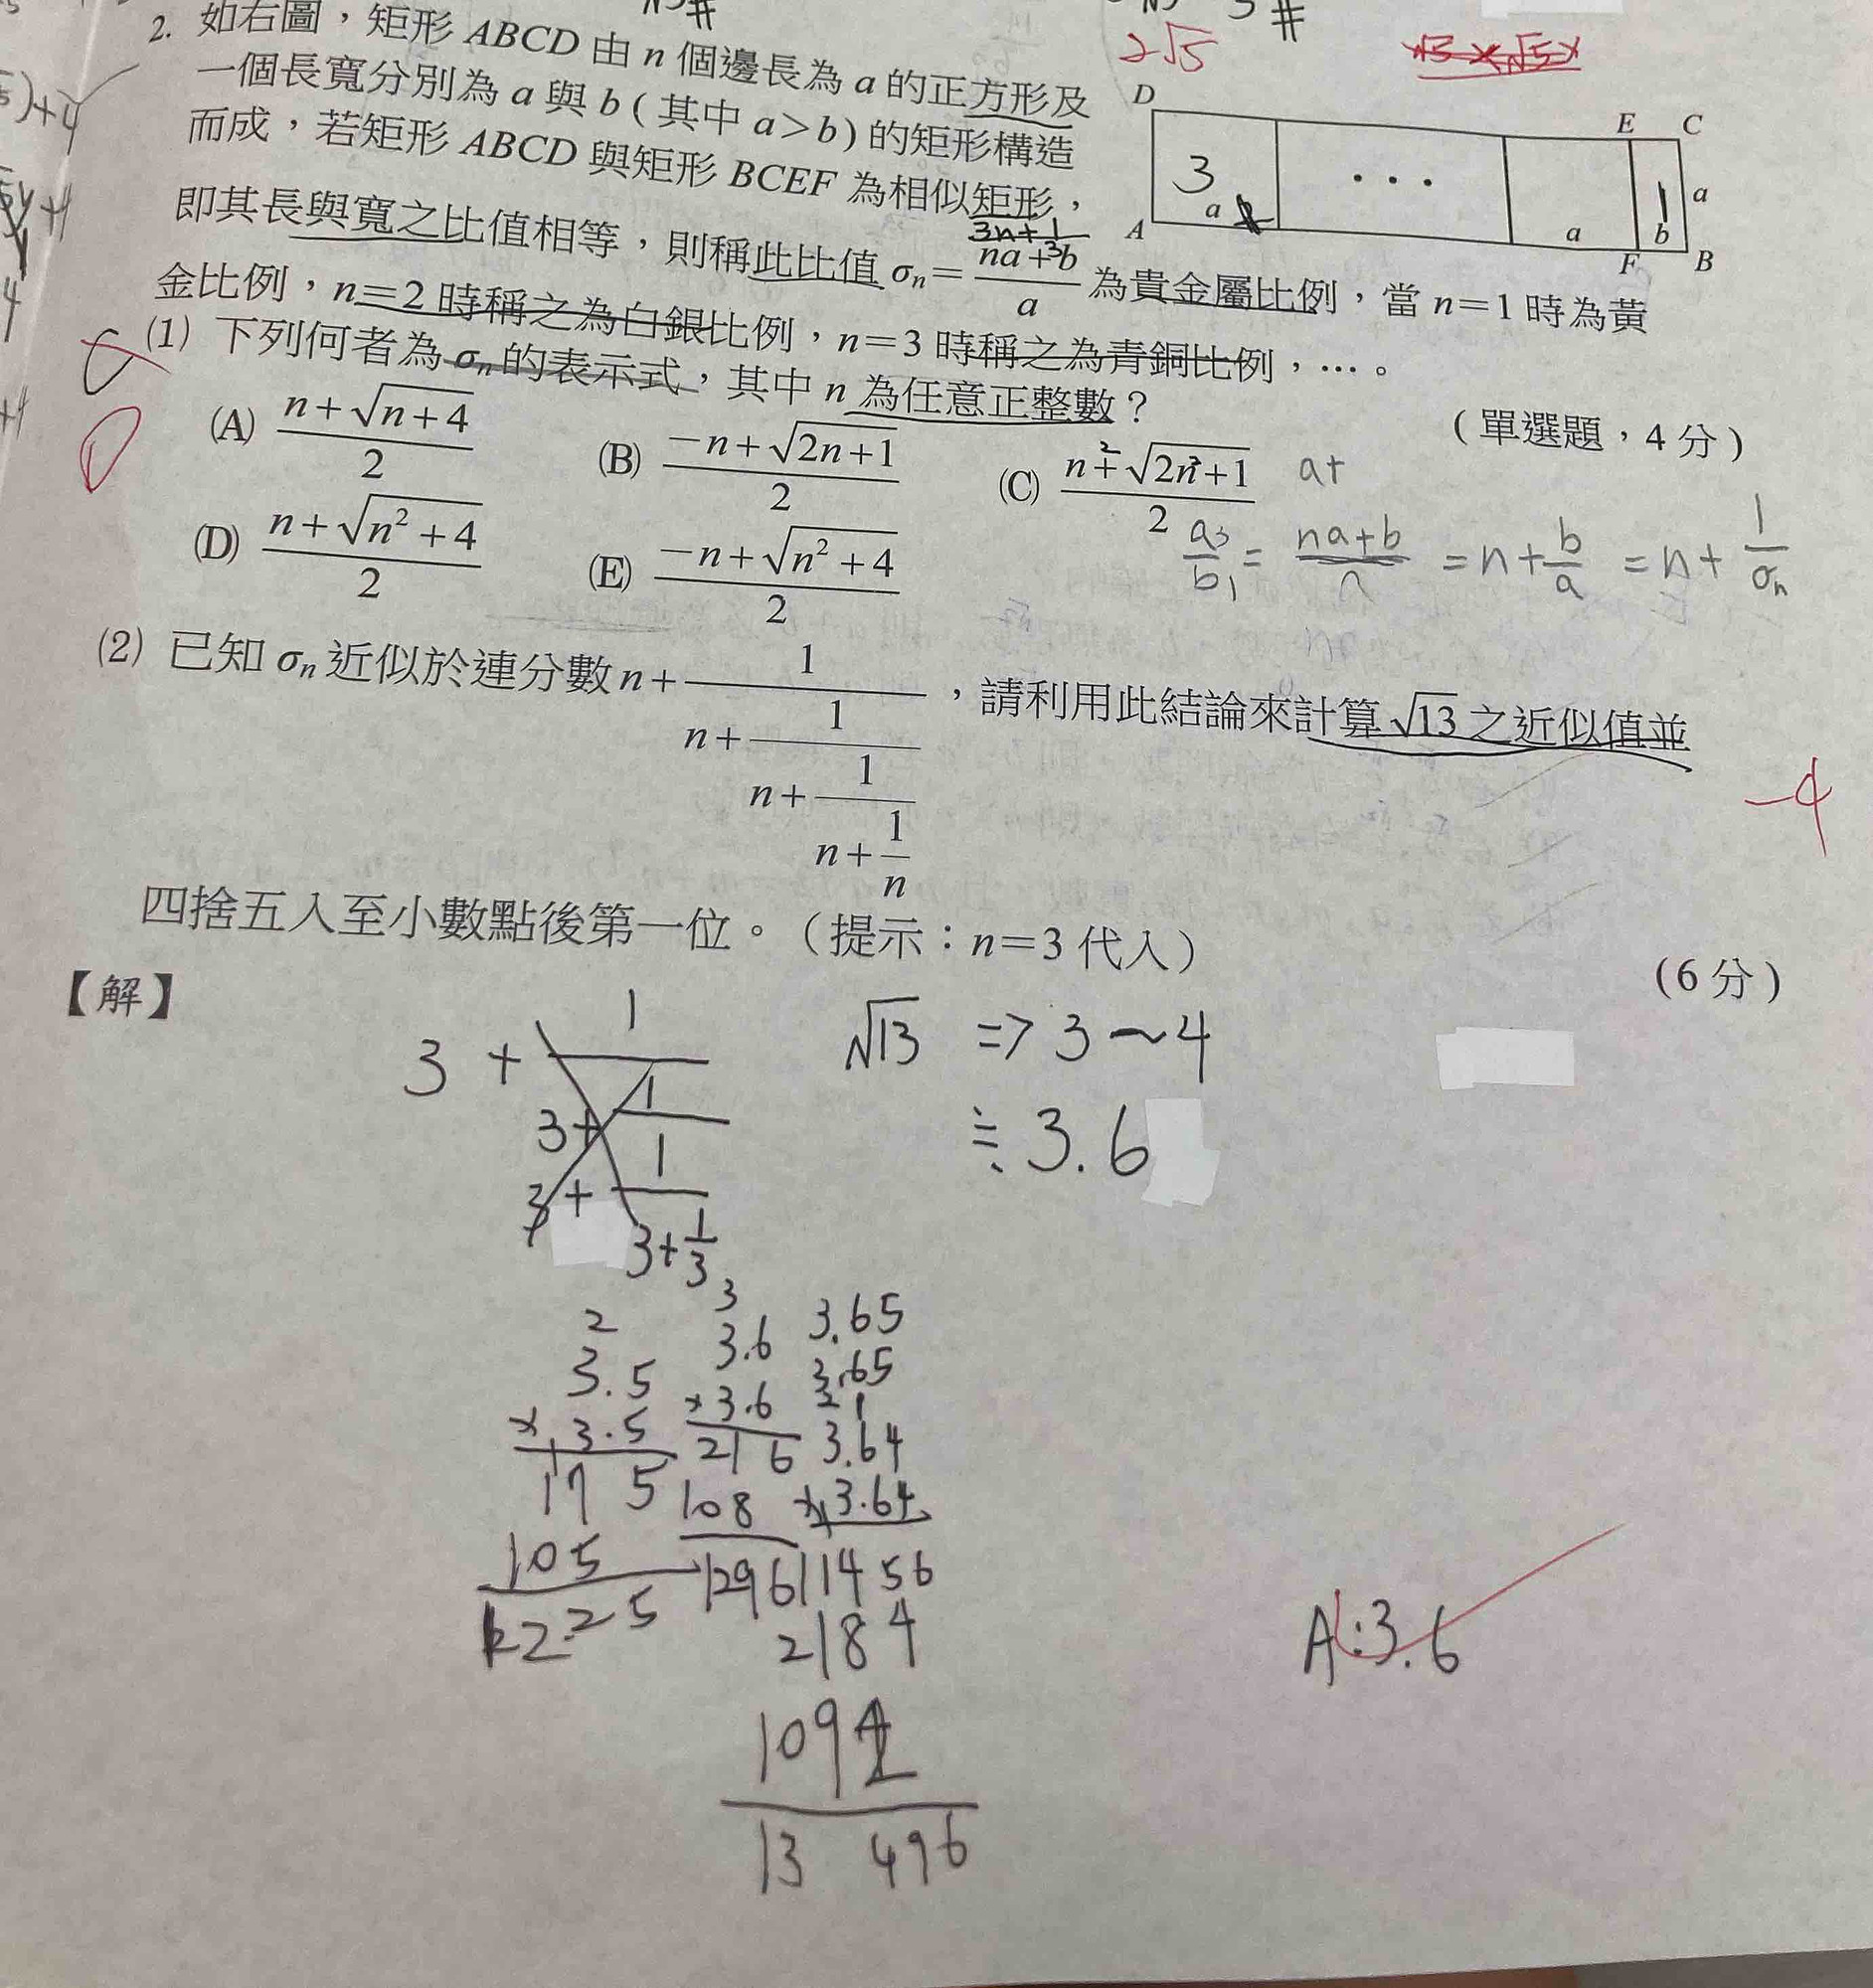 2√5
2. 如右圖,矩形 ABCD 由 n 個邊長為 a 的正方形及
一個長寬分別為 a 與 b ( 其中 a>b) 的矩形構造
而成,若矩形 ABCD 與矩形 BCEF 為相似矩形,
D E C
3 a ··· a 1 b a
A F B
3n+1
3
即其長與寬之比值相等,則稱此比值 σₙ= (na+b)/a 為貴金屬比例,當 n=1 時為黃
金比例,n=2 時稱之為白銀比例,n=3 時稱之為青銅比例,⋯。
(1) 下列何者為 σₙ 的表示式,其中 n 為任意正整數?
(單選題,4 分)
D
(A) (n+√(n+4))/2 (B) (−n+√(2n+1))/2 (C) (n+√(2n+1))/2
a+
(D) (n+√(n²+4))/2 (E) (−n+√(n²+4))/2
a3/b1 = (na+b)/a = n+b/a = n+1/σₙ
(2) 已知 σₙ 近似於連分數 n+1/(n+1/(n+1/(n+1/n))),請利用此結論來計算 √13 之近似值並
-4
四捨五入至小數點後第一位。(提示:n=3 代入)
(6 分)
【解】
3 + 1/(3+1/(3+1/(3+1/3)))
√13 => 3~4
≒ 3.6
2 3 3.65
3.5 3.6 3.65
×3.5 ×3.6 3.64
175 216 ×3.64
105 108 1456
1225 1296 2184
1092
13 496
A:3.6